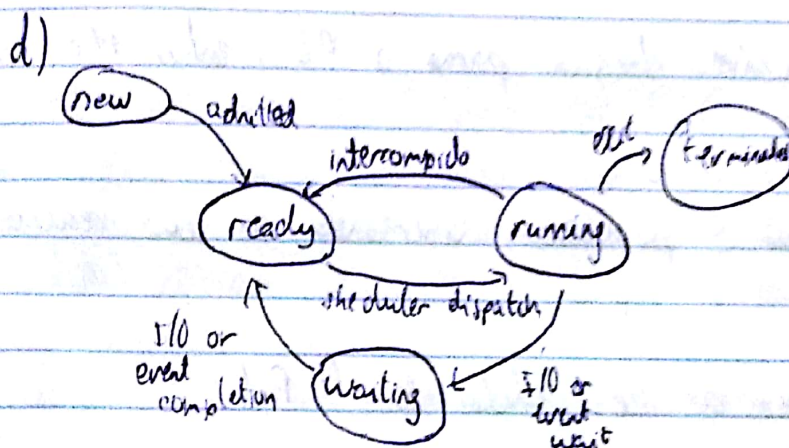 d)
new
admitted
interrompido
exit
terminated
ready
running
sheduler dispatch
I/O or
event
completion
waiting
I/O or
event
wait